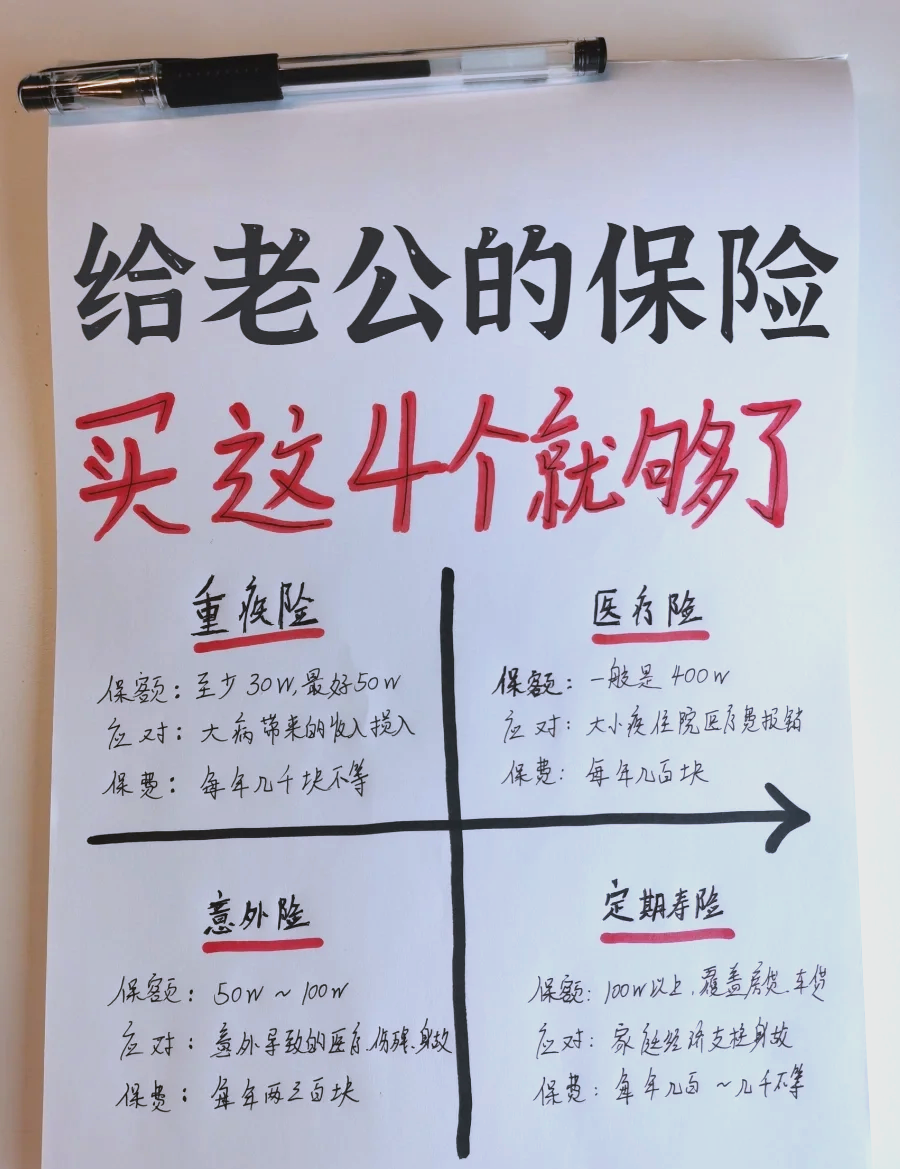 给老公的保险
买这4个就够了
重疾险
保额：至少30W，最好50W
应对：大病带来的收入损入
保费：每年几千块不等
医疗险
保额：一般是400W
应对：大小疾住院医疗费报销
保费：每年几百块
意外险
保额：50W～100W
应对：意外导致的医疗、伤残、身故
保费：每年两三百块
定期寿险
保额：100W以上，覆盖房贷、车贷
应对：家庭经济支柱身故
保费：每年几百～几千不等